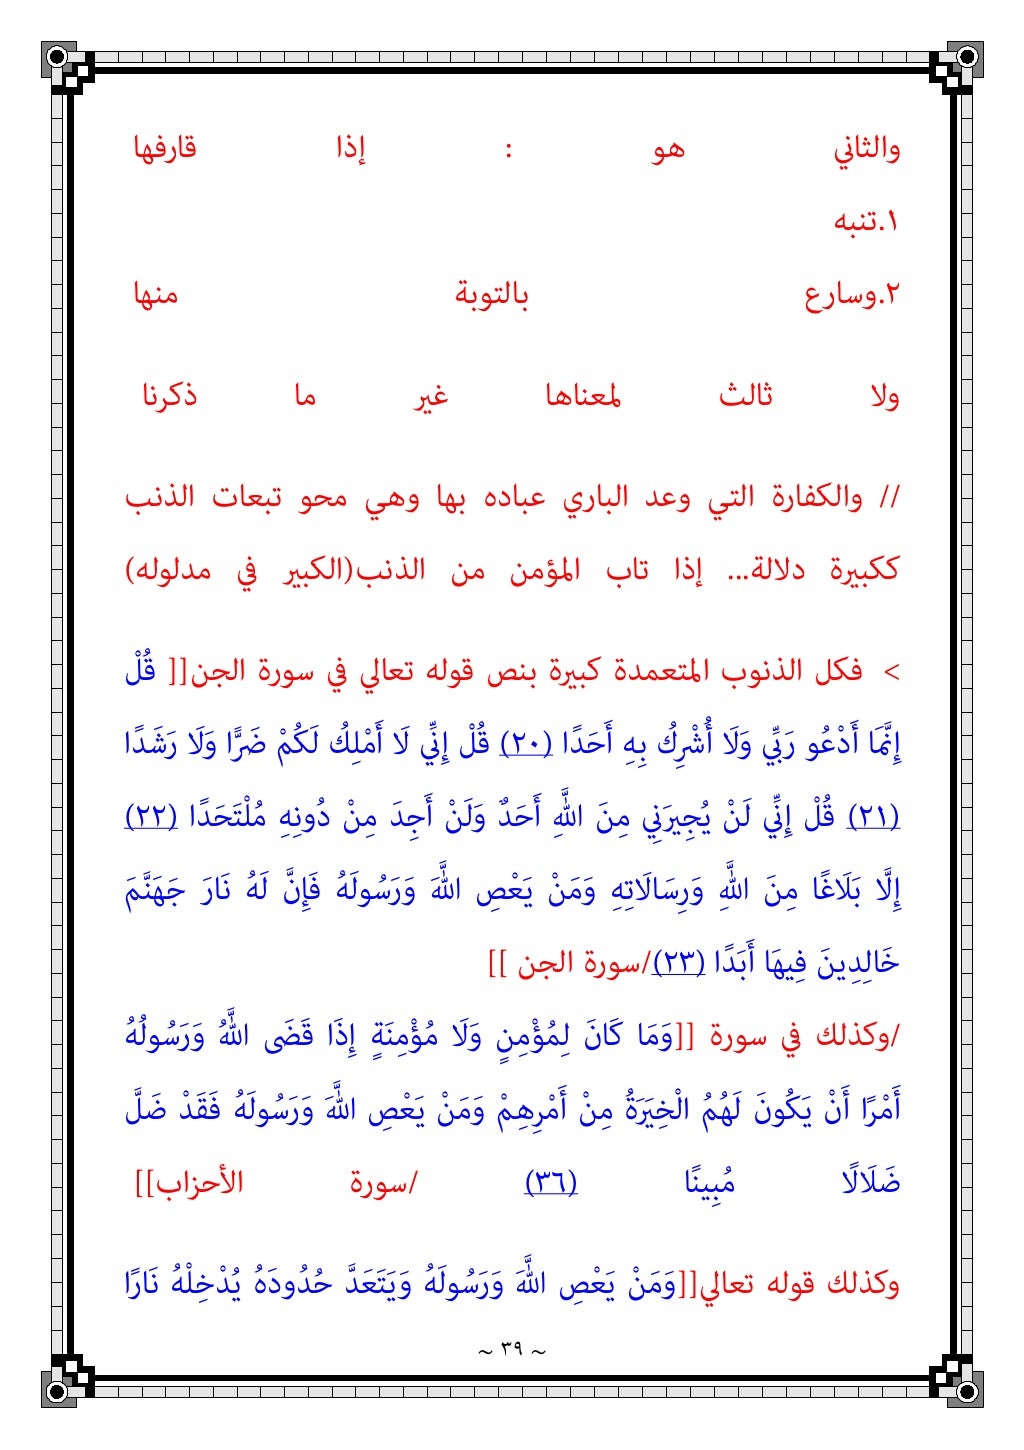 والثاني هو : إذا قارفها
١.تنبه
٢.وسارع بالتوبة منها
ولا ثالث لمعناها غير ما ذكرنا
// والكفارة التي وعد الباري عباده بها وهي محو تبعات الذنب
ككبيرة دلالة... إذا تاب المؤمن من الذنب(الكبير في مدلوله)
> فكل الذنوب المتعمدة كبيرة بنص قوله تعالي في سورة الجن[[ قُلْ
إِنَّمَا أَدْعُو رَبِّي وَلَا أُشْرِكُ بِهِ أَحَدًا (٢٠) قُلْ إِنِّي لَا أَمْلِكُ لَكُمْ ضَرًّا وَلَا رَشَدًا
(٢١) قُلْ إِنِّي لَنْ يُجِيرَنِي مِنَ اللَّهِ أَحَدٌ وَلَنْ أَجِدَ مِنْ دُونِهِ مُلْتَحَدًا (٢٢)
إِلَّا بَلَاغًا مِنَ اللَّهِ وَرِسَالَاتِهِ وَمَنْ يَعْصِ اللَّهَ وَرَسُولَهُ فَإِنَّ لَهُ نَارَ جَهَنَّمَ
خَالِدِينَ فِيهَا أَبَدًا (٢٣)/سورة الجن ]]
/وكذلك في سورة [[وَمَا كَانَ لِمُؤْمِنٍ وَلَا مُؤْمِنَةٍ إِذَا قَضَى اللَّهُ وَرَسُولُهُ
أَمْرًا أَنْ يَكُونَ لَهُمُ الْخِيَرَةُ مِنْ أَمْرِهِمْ وَمَنْ يَعْصِ اللَّهَ وَرَسُولَهُ فَقَدْ ضَلَّ
ضَلَالًا مُبِينًا (٣٦) /سورة الأحزاب]]
وكذلك قوله تعالي[[وَمَنْ يَعْصِ اللَّهَ وَرَسُولَهُ وَيَتَعَدَّ حُدُودَهُ يُدْخِلْهُ نَارًا
~ ٣٩ ~